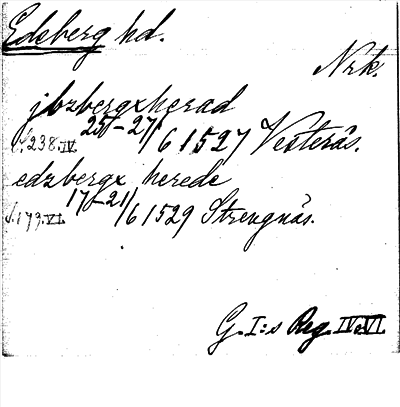 Edeberg hd.
Nrk.
jbzbergx herad
s. 238. IV. 25–27/6 1527 Vesterås.
edzbergx herede
s. 173. VI. 17–21/6 1529 Strengnäs.
G. I:s Reg. IV. VI.